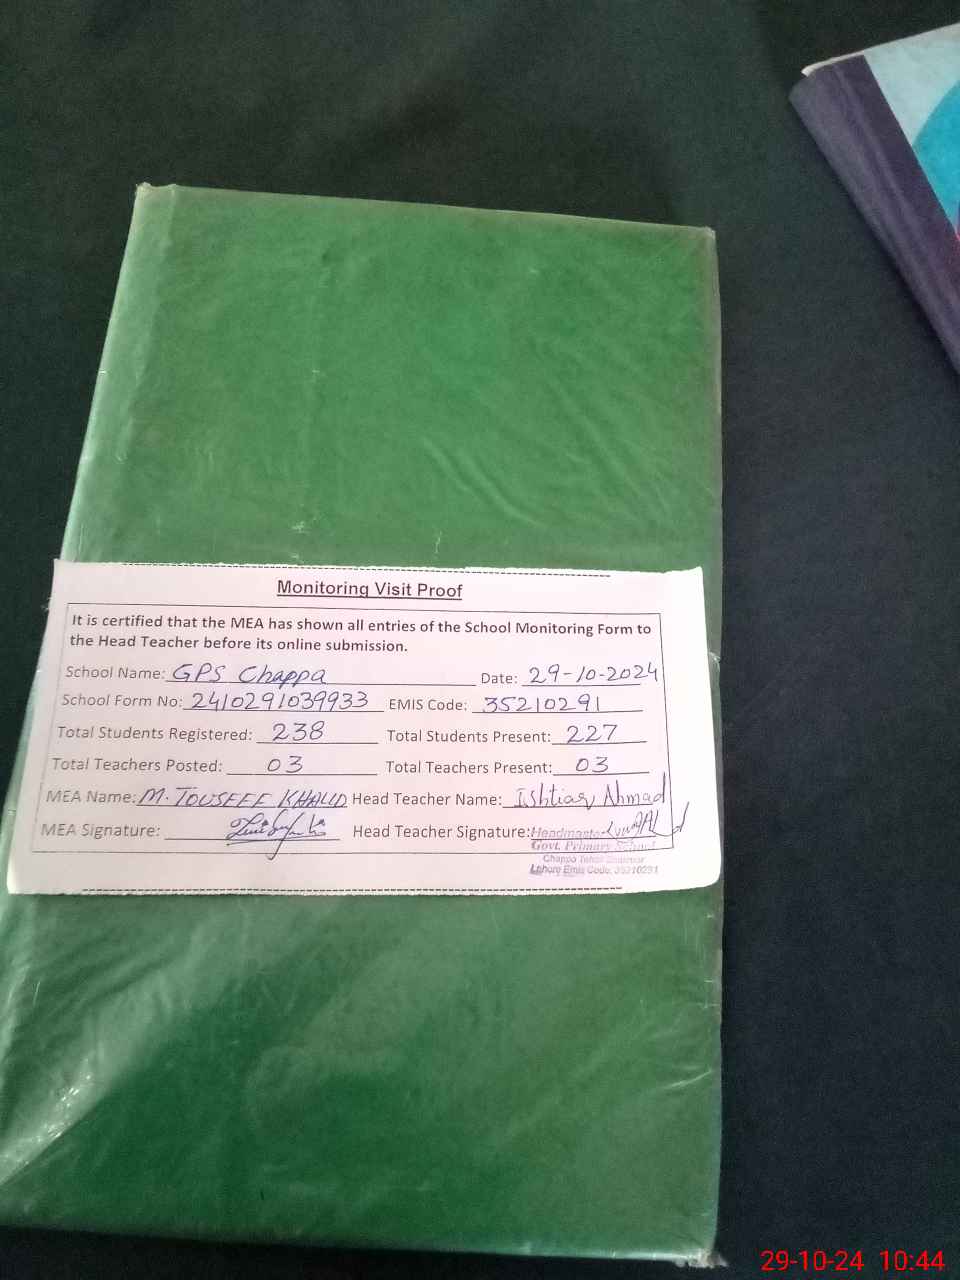 Monitoring Visit Proof
It is certified that the MEA has shown all entries of the School Monitoring Form to
the Head Teacher before its online submission.
School Name: GPS Chappa Date: 29-10-2024
School Form No: 2410291039933 EMIS Code: 35210291
Total Students Registered: 238 Total Students Present: 227
Total Teachers Posted: 03 Total Teachers Present: 03
MEA Name: M. TOUSEEF KHALID Head Teacher Name: Ishtiaq Ahmad
MEA Signature: Head Teacher Signature: Headmaster
Govt. Primary School
Chappa Tehsil
Lahore Emis Code: 35210291
29-10-24 10:44